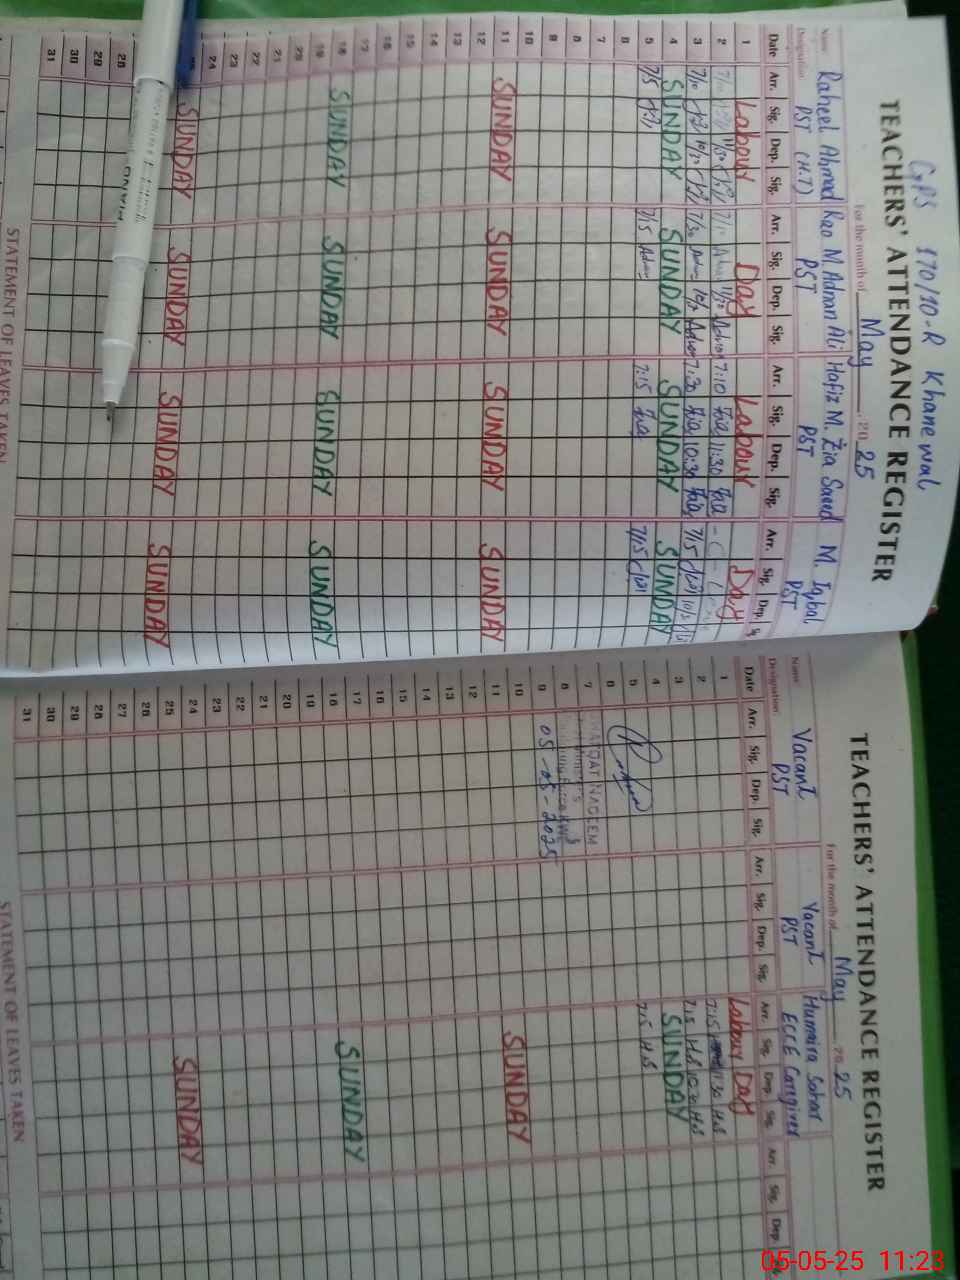 GPS 170/10-R Khanewal
TEACHERS' ATTENDANCE REGISTER
For the month of May 2025
Name Raheel Ahmad Rao M. Adnan Ali Hafiz M. Zia Saeed M. Iqbal
Designation PST (H.T) PST PST PST
Date Arr. Sig. Dep. Sig. Arr. Sig. Dep. Sig. Arr. Sig. Dep. Sig. Arr. Sig. Dep.
1 Labour Day Labour Day
2 7/10 11/30 7/10 11/30 Adnan 7:10 Zia 11:30 Zia
3 7/10 10/30 7/30 Adnan Adnan 7:30 Zia 10:30 Zia 7/15
4 SUNDAY SUNDAY SUNDAY SUNDAY
5 7/15 7/15 Adnan 7:15 Zia 7/15
6
7
8
9
10
11 SUNDAY SUNDAY SUNDAY SUNDAY
12
13
14
15
16
17
18 SUNDAY SUNDAY SUNDAY SUNDAY
19
20
21
22
23
24
SUNDAY SUNDAY SUNDAY SUNDAY
28
29
30
31
STATEMENT OF LEAVES TAKEN
TEACHERS' ATTENDANCE REGISTER
For the month of May 2025
Name Vacant Vacant Humaira Sahar
Designation PST PST ECCE Caregiver
Date Arr. Sig. Dep. Sig. Arr. Sig. Dep. Sig. Arr. Sig. Dep. Sig. Arr. Sig. Dep
1 Labour Day
2 7:15 11:30 H.S
3 7:15 H.S 10:30 H.S
4 SUNDAY
5 7:15 H.S
6
7
8
9 05-05-2025
10
11 SUNDAY
12
13
14
15
16
17
18 SUNDAY
19
20
21
22
23
24
25 SUNDAY
26
27
28
29
30
31
STATEMENT OF LEAVES TAKEN
05-05-25 11:23